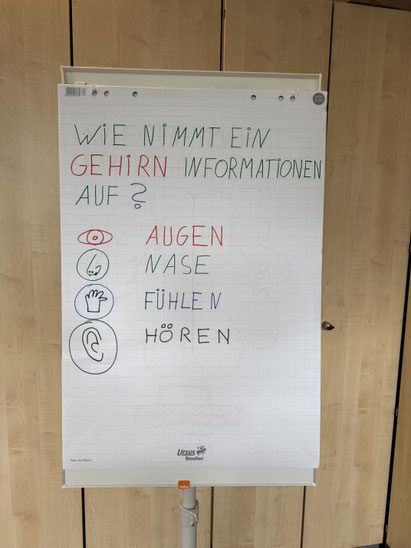 WIE NIMMT EIN
GEHIRN INFORMATIONEN
AUF ?
AUGEN
NASE
FÜHLEN
HÖREN
URSUS